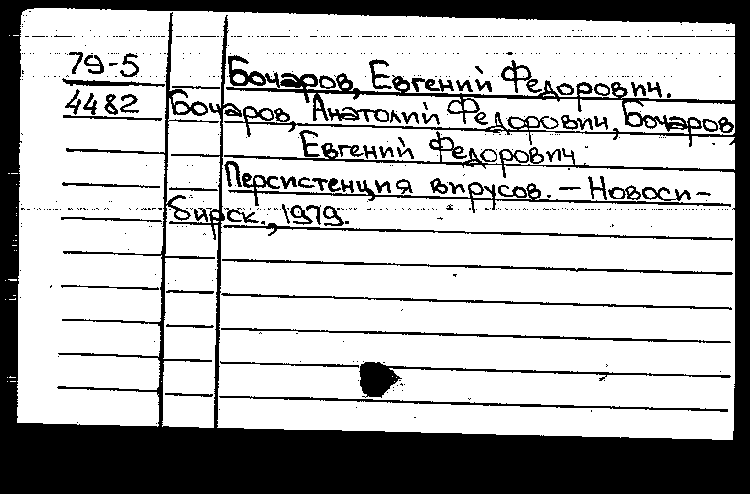 79-5 Бочаров, Евгений Федорович.
4482 Бочаров, Анатолий Федорович, Бочаров,
Евгений Федорович
Персистенция вирусов. — Новоси-
бирск., 1979.